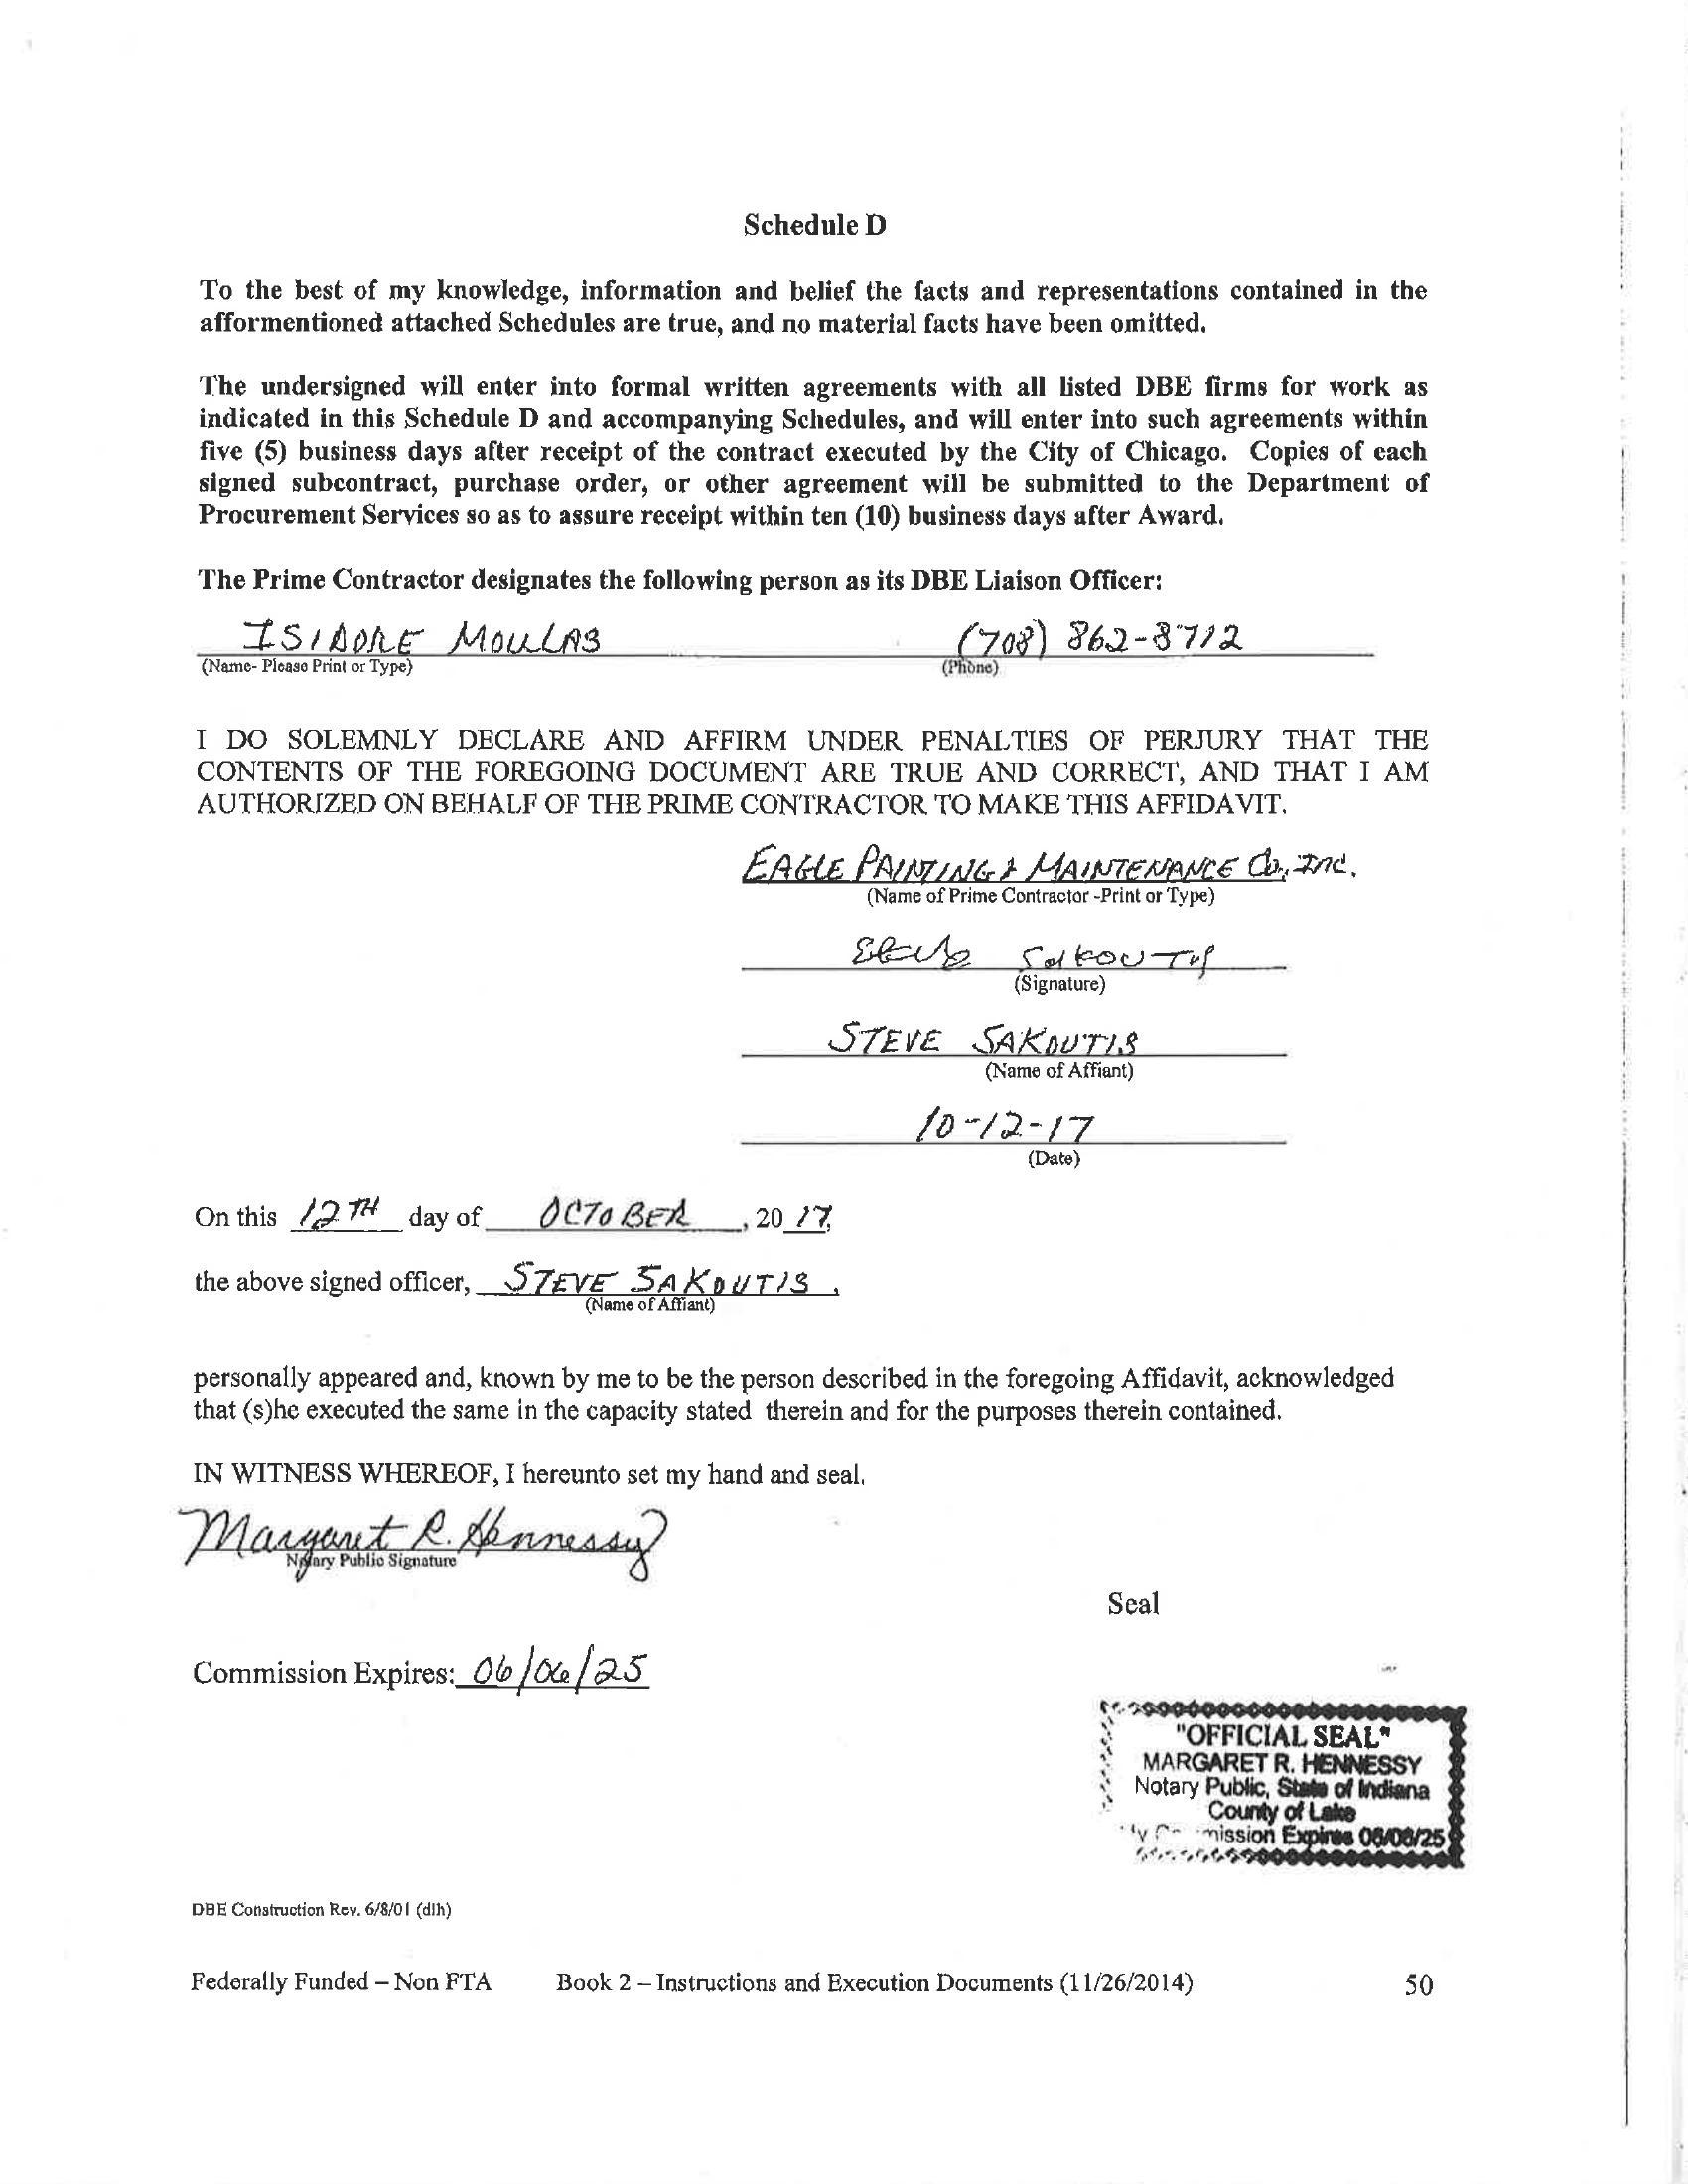 Schedule D
To the best of my knowledge, information and belief the facts and representations contained in the
afformentioned attached Schedules are true, and no material facts have been omitted.
The undersigned will enter into formal written agreements with all listed DBE firms for work as
indicated in this Schedule D and accompanying Schedules, and will enter into such agreements within
five (5) business days after receipt of the contract executed by the City of Chicago. Copies of each
signed subcontract, purchase order, or other agreement will be submitted to the Department of
Procurement Services so as to assure receipt within ten (10) business days after Award.
The Prime Contractor designates the following person as its DBE Liaison Officer:
ISIDORE MOULAS (708) 862-8712
(Name- Please Print or Type) (Phone)
I DO SOLEMNLY DECLARE AND AFFIRM UNDER PENALTIES OF PERJURY THAT THE
CONTENTS OF THE FOREGOING DOCUMENT ARE TRUE AND CORRECT, AND THAT I AM
AUTHORIZED ON BEHALF OF THE PRIME CONTRACTOR TO MAKE THIS AFFIDAVIT.
EAGLE PAINTING & MAINTENANCE Co., INC.
(Name of Prime Contractor -Print or Type)
Steve Sakoutis
(Signature)
STEVE SAKOUTIS
(Name of Affiant)
10-12-17
(Date)
On this 12TH day of OCTOBER, 20 17,
the above signed officer, STEVE SAKOUTIS,
(Name of Affiant)
personally appeared and, known by me to be the person described in the foregoing Affidavit, acknowledged
that (s)he executed the same in the capacity stated therein and for the purposes therein contained.
IN WITNESS WHEREOF, I hereunto set my hand and seal.
Margaret R. Hennessy
Notary Public Signature
Seal
Commission Expires: 06/06/25
"OFFICIAL SEAL"
MARGARET R. HENNESSY
Notary Public, State of Indiana
County of Lake
Expires
DBE Construction Rev. 6/8/01 (dlh)
Federally Funded – Non FTA Book 2 – Instructions and Execution Documents (11/26/2014) 50